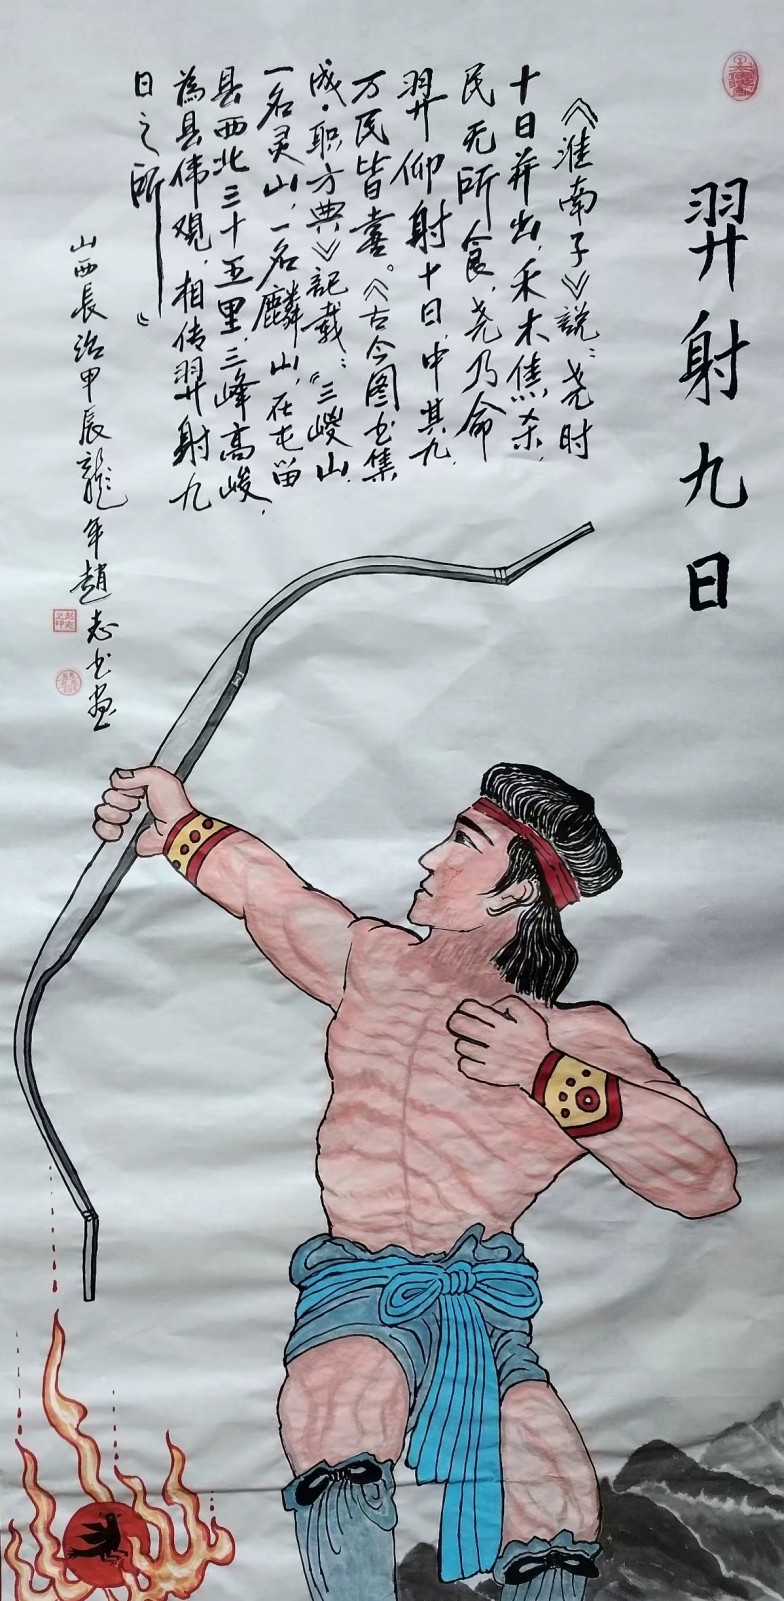 羿射九日
《淮南子》説：尧时
十日并出，禾木焦杀，
民无所食，尧乃命
羿仰射十日，中其九，
万民皆喜。《古今图书集
成·职方典》記载：“三嵕山，
一名灵山，一名麟山，在屯留
县西北三十五里，三峰高峻，
為县伟观，相传羿射九
日之所”
山西長治甲辰龍年趙志书画